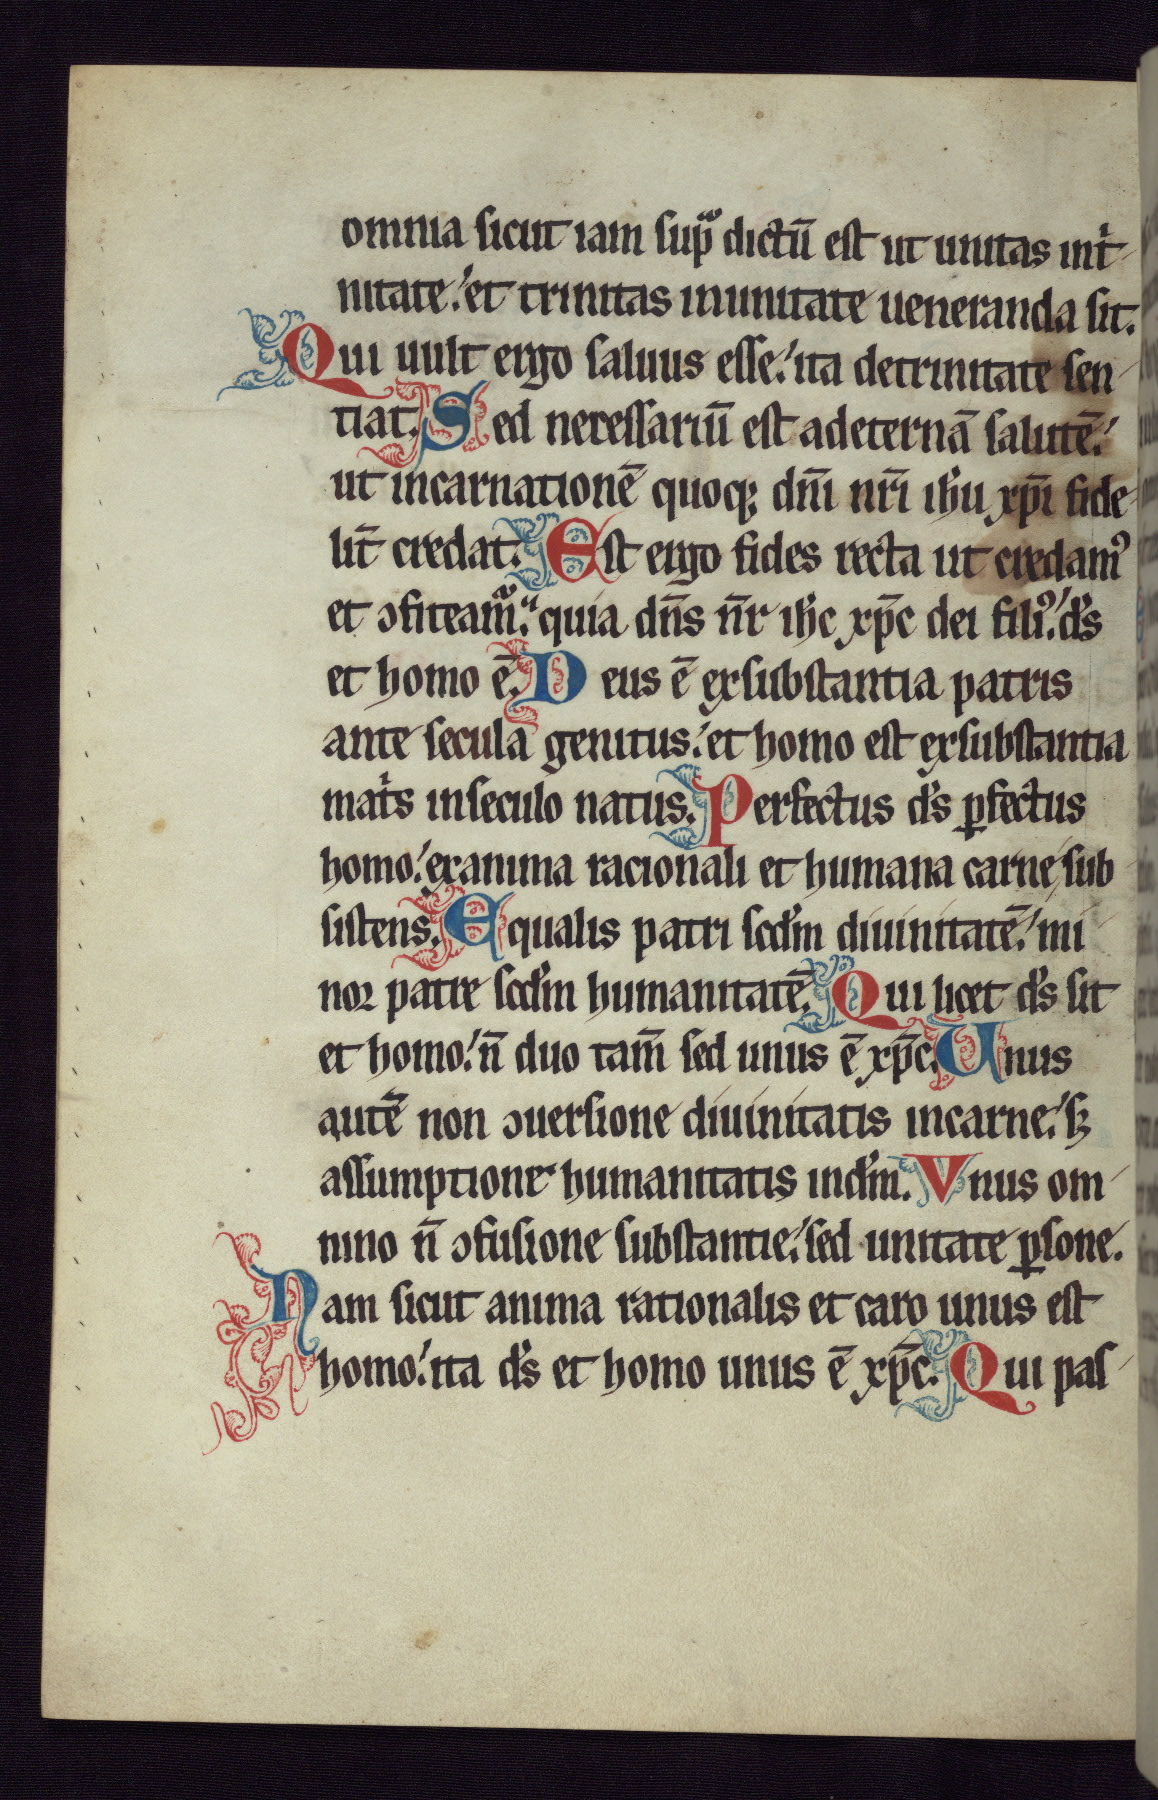 omnia sicut iam supᷓ dictū est ut unitas int̾
nitate. et trinitas inunitate ueneranda sit.
Qui uult ergo saluus esse. ita detrinitate sen
tiat. Sed necessariū est adeternā salutē.
ut incarnationē quoq; dn̄i nr̄i ih̄u xp̄i fide
lit̄ credat. Est ergo fides recta ut credamꝰ
et ↄfiteamᷣ. quia dn̄s nr̄ ih̄c xp̄c dei filiꝰ. d̄s
et homo ē. Deus ē exsubstantia patris
ante secula genitus. et homo est exsubstantia
mat̾s inseculo natus. Perfectus d̄s ꝑfectus
homo. exanima racionali et humana carne sub
sistens. Equalis patri scd̄m diuinitatē. mi
nor patre scd̄m humanitatē. Qui licet d̄s sit
et homo. n̄ duo tam̄ sed unus ē xp̄c. Unus
autē non ↄuersione diuinitatis incarne. sꝫ
assumptione humanitatis ind̄m. Vnus om
nino n̄ ↄfusione substantie. sed unitate ꝑsone.
Nam sicut anima rationalis et caro unus est
homo. ita d̄s et homo unus ē xp̄c. Qui pas